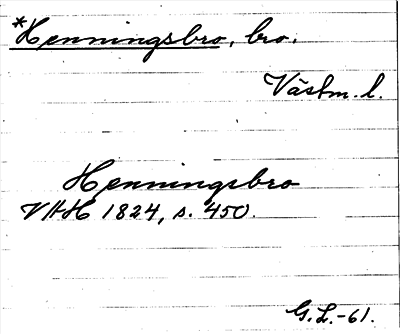 *Henningsbro, bro.
Västm. l.
Henningsbro
VHH 1824, s. 450.
G.L.-61.